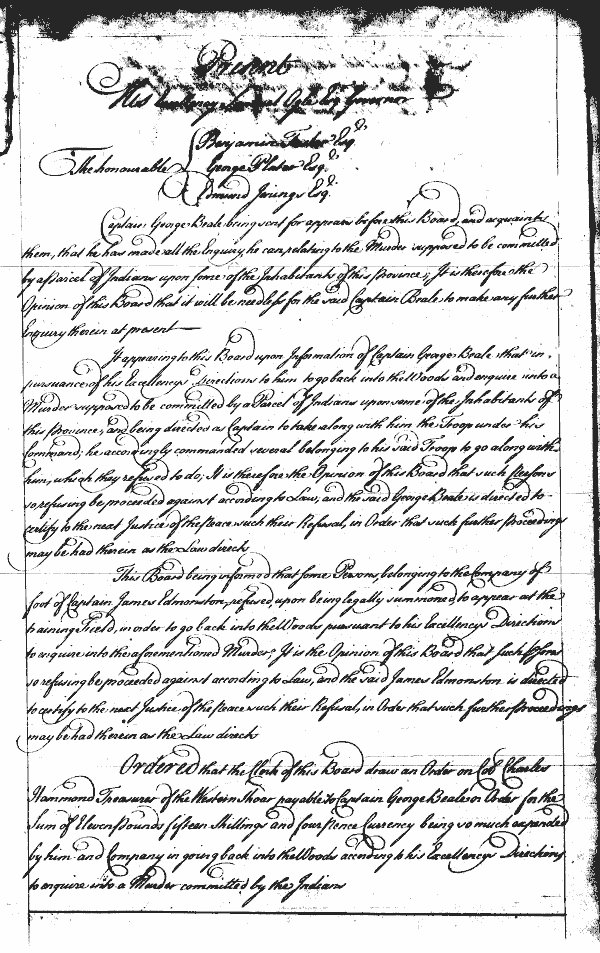 Present
His Excellency Samuel Ogle Esqr. Governor
Benjamin Tasker Esqr.
The honourable George Plater Esqr.
Edmund Jenings Esqr.
Captain George Beale being sent for appears before this Board, and acquaints
them, that he has made all the Enquiry he can, relating to the Murder supposed to be committed
by a Parcel of Indians upon some of the Inhabitants of this Province; It is therefore the
Opinion of this Board that it will be needless for the said Captain Beale to make any further
Enquiry therein at present
It appearing to this Board upon Information of Captain George Beale that in
pursuance of his Excellencys Directions to him to go back into the Woods and enquire into a
Murder supposed to be committed by a Parcel of Indians upon some of the Inhabitants of
this Province, and being directed as Captain to take along with him the Troop under his
Command; he accordingly commanded several belonging to his said Troop to go along with
him, which they refused to do; It is therefore the Opinion of this Board that such Persons
so refusing be proceeded against according to Law, and the said George Beale is directed to
certify to the next Justice of the Peace such their Refusal, in Order that such further Proceedings
may be had therein as the Law directs
This Board being informed that some Persons, belonging to the Company of
foot of Captain James Edmonston, refused upon being legally summoned to appear at the
training Field, in order to go back into the Woods pursuant to his Excellencys Directions
to enquire into the aforementioned Murder; It is the Opinion of this Board that such Persons
so refusing be proceeded against according to Law, and the said James Edmonston is directed
to certify to the next Justice of the Peace such their Refusal, in Order that such further Proceedings
may be had therein as the Law directs
Ordered that the Clerk of this Board draw an Order on Col. Charles
Hammond Treasurer of the Western Shoar payable to Captain George Beale or Order for the
Sum of Eleven Pounds fifteen Shillings and four Pence Currency being so much expended
by him and Company in going back into the Woods according to his Excellencys Directions
to enquire into a Murder committed by the Indians